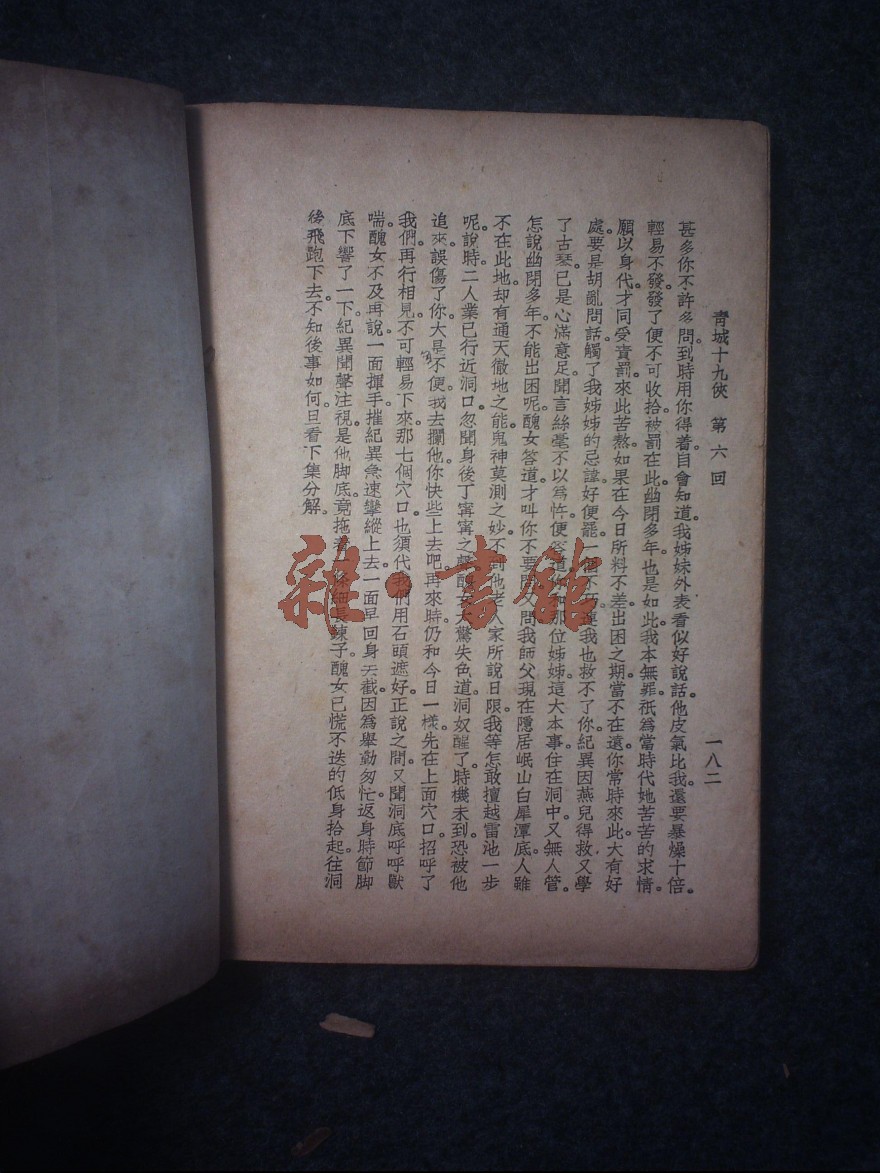 青城十九俠　第六回　一八二
甚多你不許多問。到時用你得着。自會知道。我姊妹外表看似好說話。他皮氣比我。還要暴燥十倍。
輕易不發。發了便不可收拾。被罰在此。幽閉多年。也是如此。我本無罪。祇爲當時代她苦苦的求情。
願以身代。才同受責罰。來此苦熬。如果在今日所料不差。出困之期。當不在遠。你常時來此。大有好
處。要是胡亂問話。觸了我姊姊的忌諱。好便罷。一個不巧。連我也救不了你。紀異因燕兒得救。又學
了古琴。已是心滿意足。聞言絲毫不以爲忤。便答道。那位姊姊。這大本事。住在洞中。又無人管。
怎說幽閉多年。不能出困呢。醜女答道。才叫你不要問。又問。我師父現在隱居岷山白犀潭底。人雖
不在此地。却有通天徹地之能。鬼神莫測之妙。不到他老人家所說日限。我等怎敢擅越雷池一步
呢。說時。二人業已行近洞口。忽聞身後丁甯甯之聲。醜女大驚失色道。洞奴醒了。時機未到。恐被他
追來。誤傷了你。大是不便。我去攔他。你快些上去吧。再來時。仍和今日一樣。先在上面穴口。招呼了
我們。再行相見。不可輕易下來。那七個穴口。也須代我們用石頭遮好。正說之間。又聞洞底呼呼獸
喘。醜女不及再說。一面揮手摧紀異急速攀縱上去。一面早回身去截。因爲舉動匆忙。返身時節。脚
底下響了一下。紀異聞聲注視。是他脚底竟拖着一條細長鍊子。醜女已慌不迭的低身拾起。往洞
後飛跑下去。不知後事如何。且看下集分解。
雜·書館